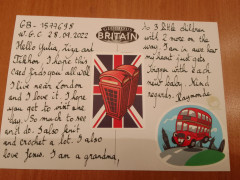 GB-1577698
W.G.C 28.09.2022
Hello Yulia, Yuga and
I hope this
Card finds you all well.
I live near London
and I love it. I hope
you get to visit one
day. So much to see
and do. I also knit
and crochet a lot. I also
love Jesus. I am a grandma,
BRITAIN
to 3 little children
with 2 more on the
way. I am in awe how
my heart just gets
bigger with each
new baby. Kind
regards. Raymonde